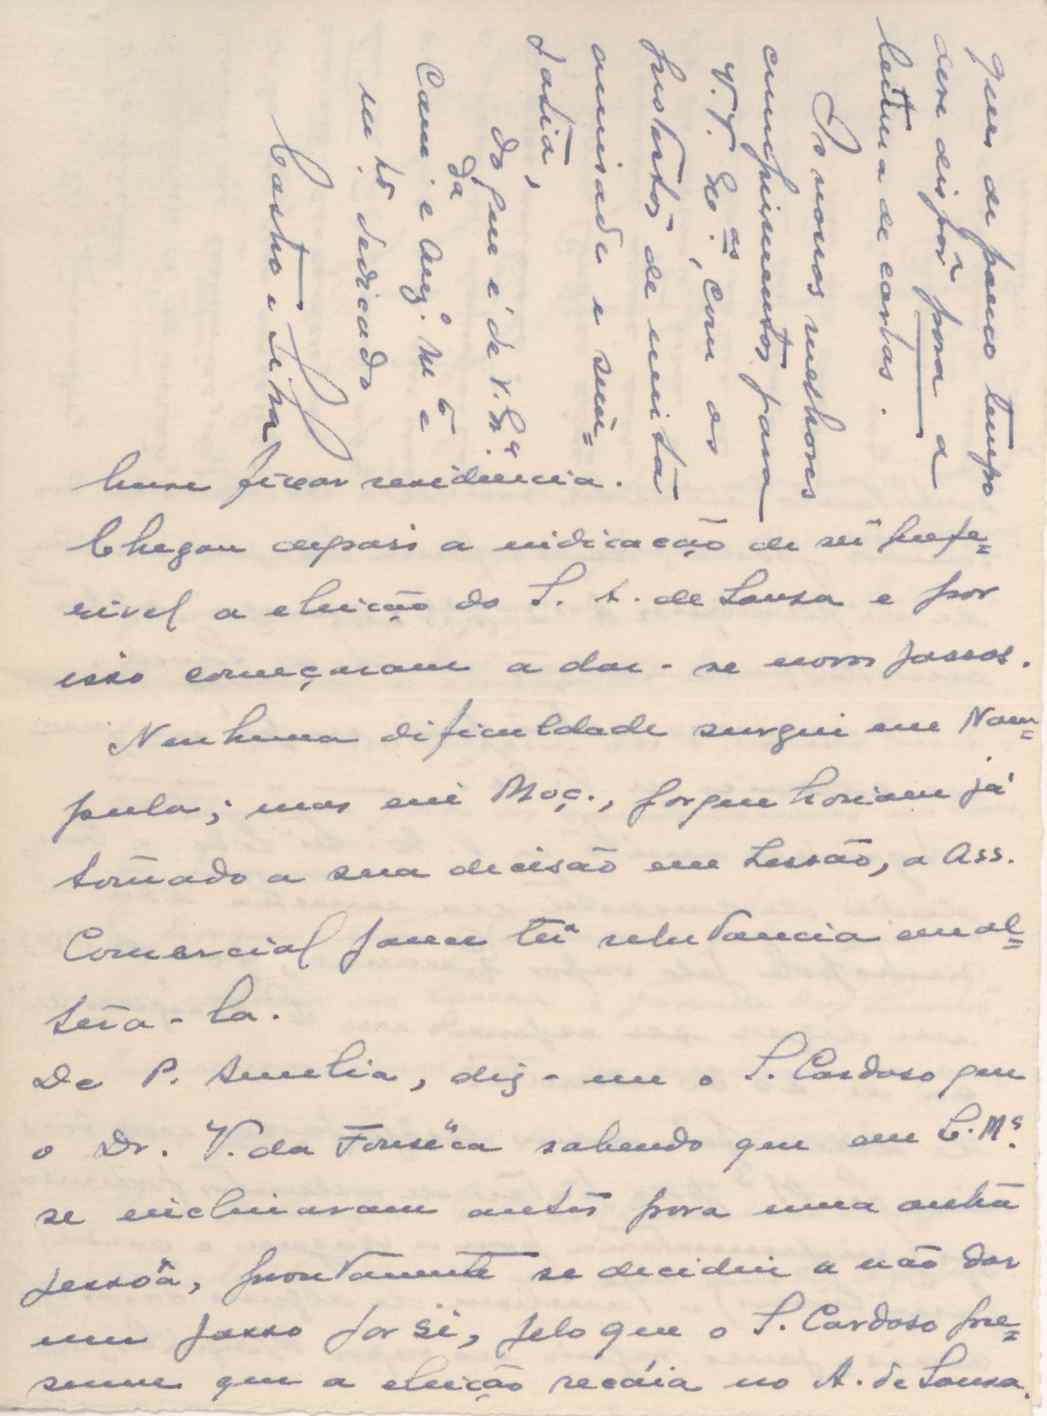 hum ficar residencia.
Chegou depois a indicação de ser prefe=
rivel a eleição do S. A. de Sousa e por
isso começaram a dar-se novos passos.
Nenhuma dificuldade surgiu em Nam=
pula; mas em Moç., porque haviam já
tomado a sua decisão em sessão, a Ass.
Comercial parece ter relutancia em al=
tera-la.
De P. Amelia, diz-me o S. Cardoso que
o Dr. V. da Fonsêca sabendo que em L. Ms.
se inclinaram antes para uma outra
pessoa, prontamente se decidiu a não dar
um passo por si, pelo que o S. Cardoso pre=
sume que a eleição recáia no A. de Sousa.
ques de pouco tempo
dem dispôr para a
leitura de cartas.
Os nossos melhores
cumprimentos para
V. V. Exas., com os
protestos de muita
amisade e sau=
dade,
do que é de V. Exa.
Cam. e Amg.o Mto e
mto dedicado
Castro e Silva